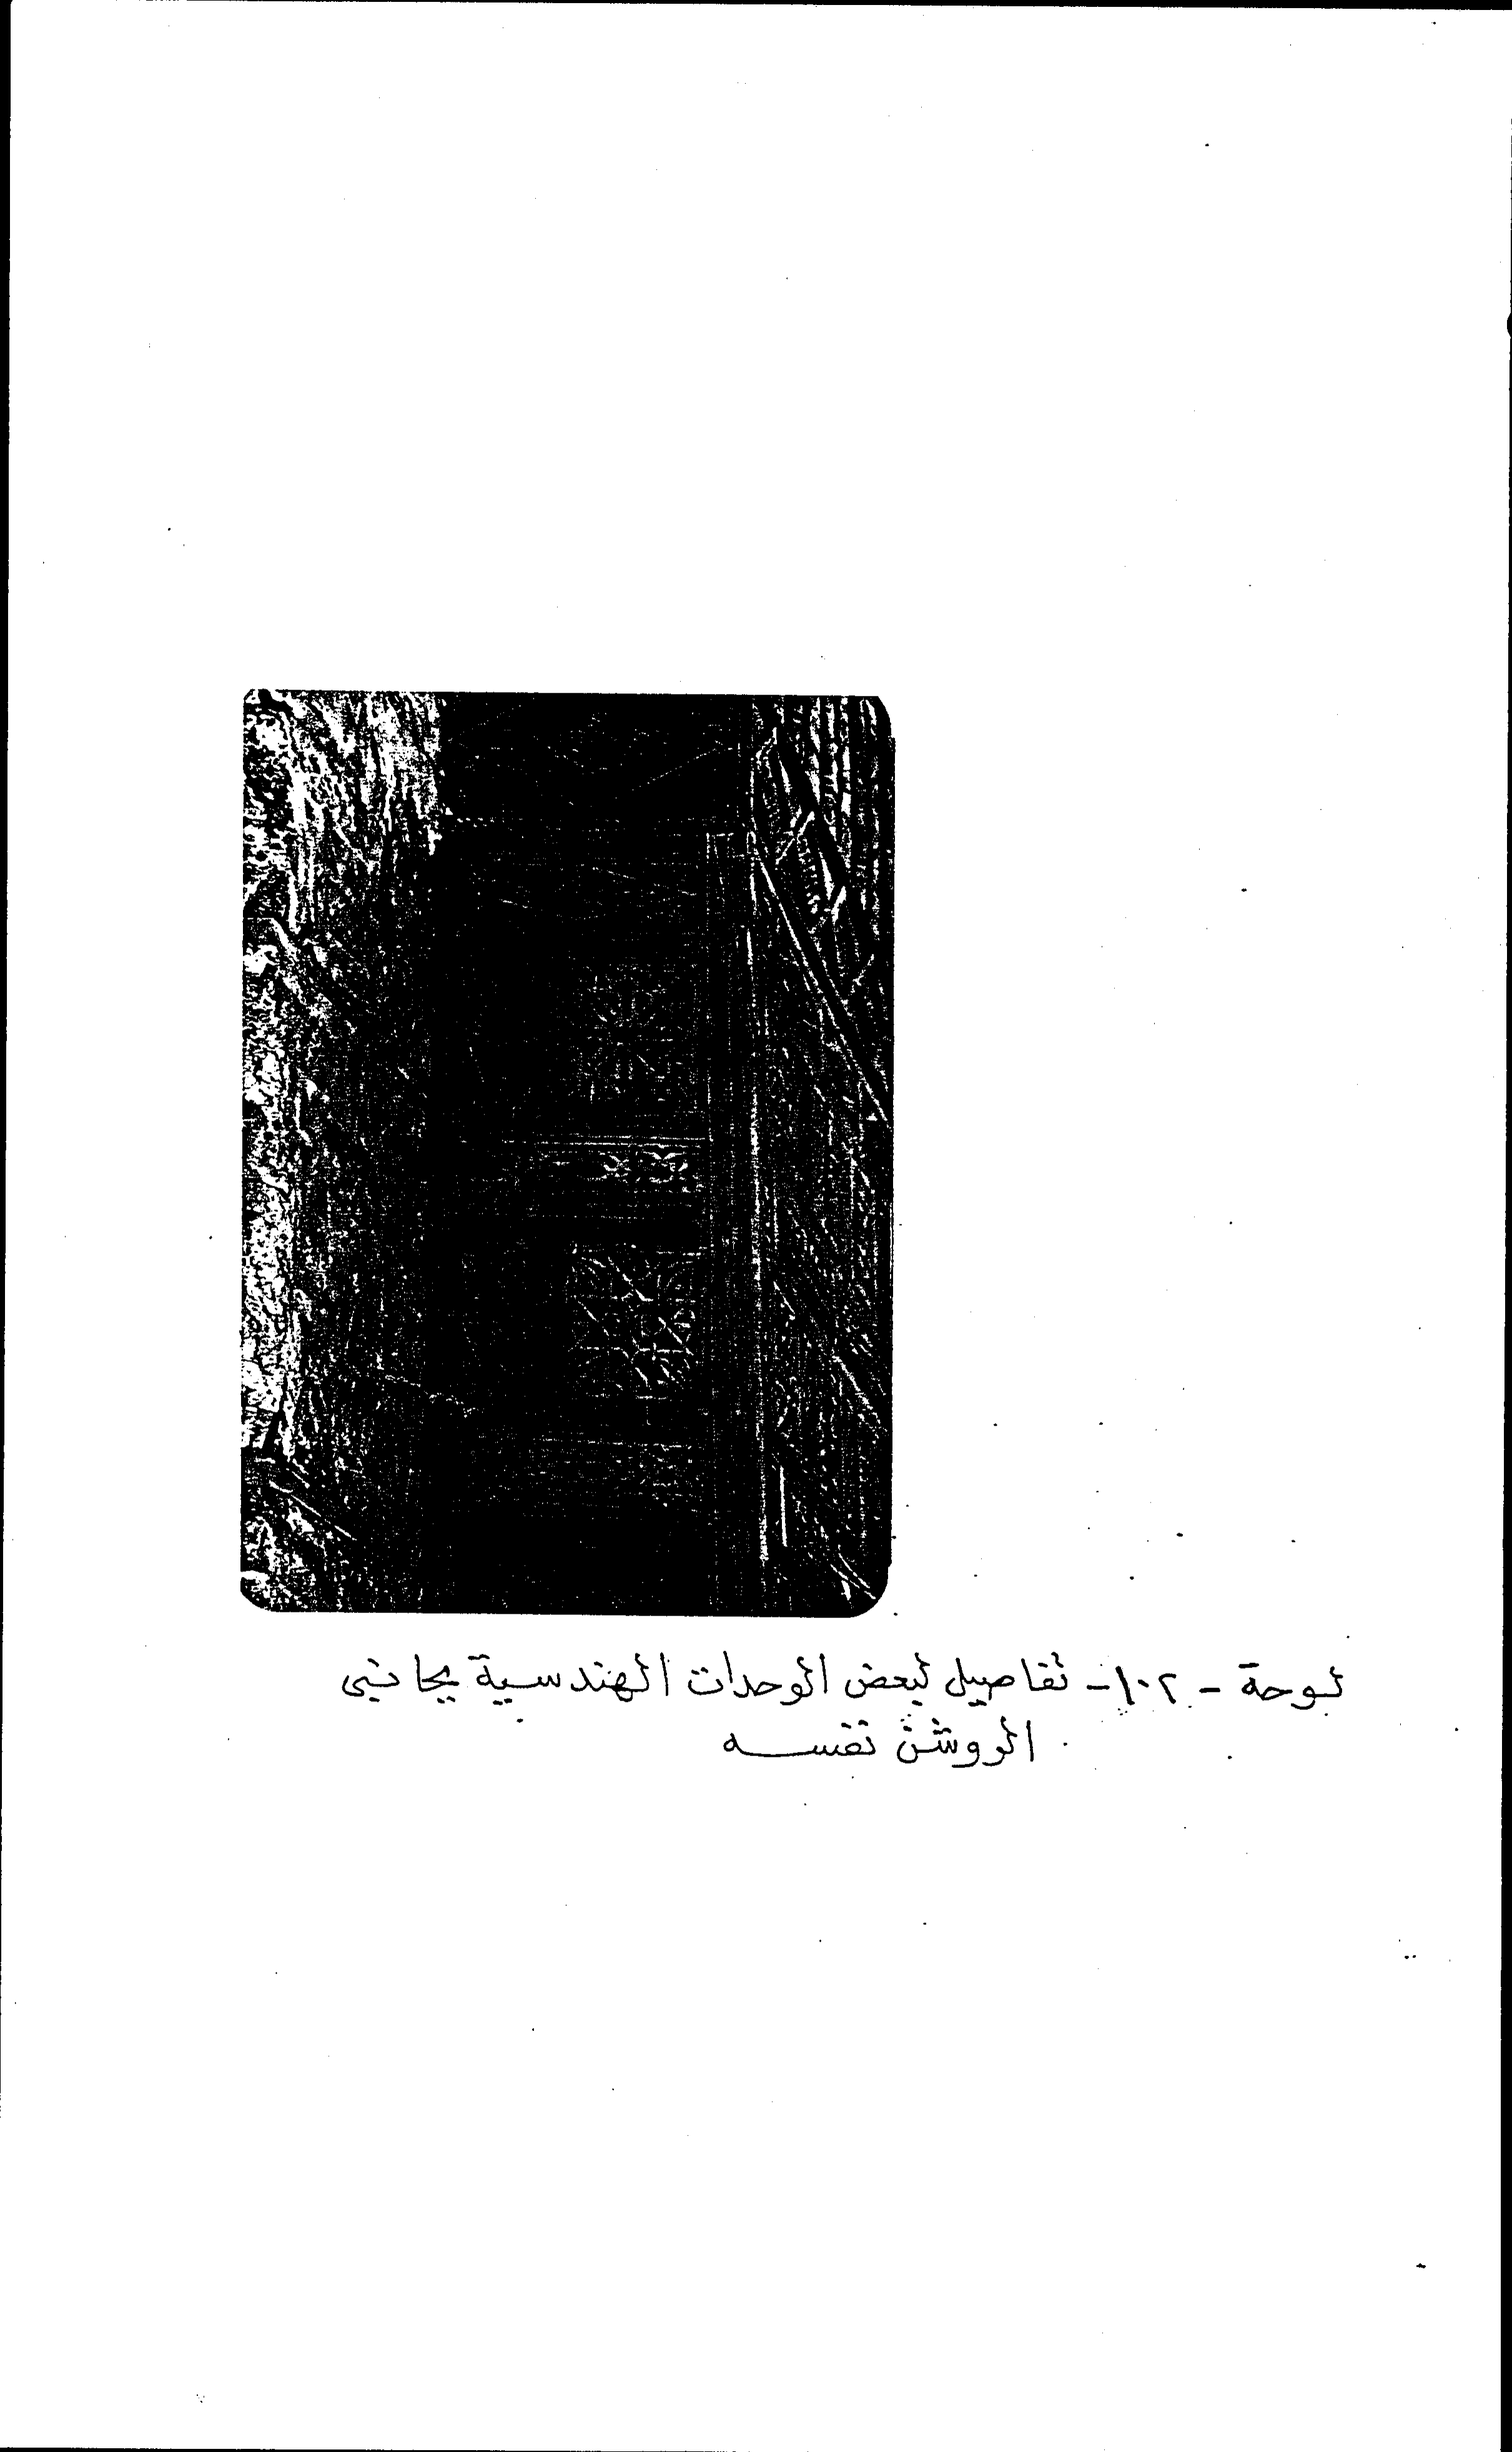 لوحة - ١٠٢ - تفاصيل لبعض الوحدات الهندسية بجانبى
الروشن نفسه